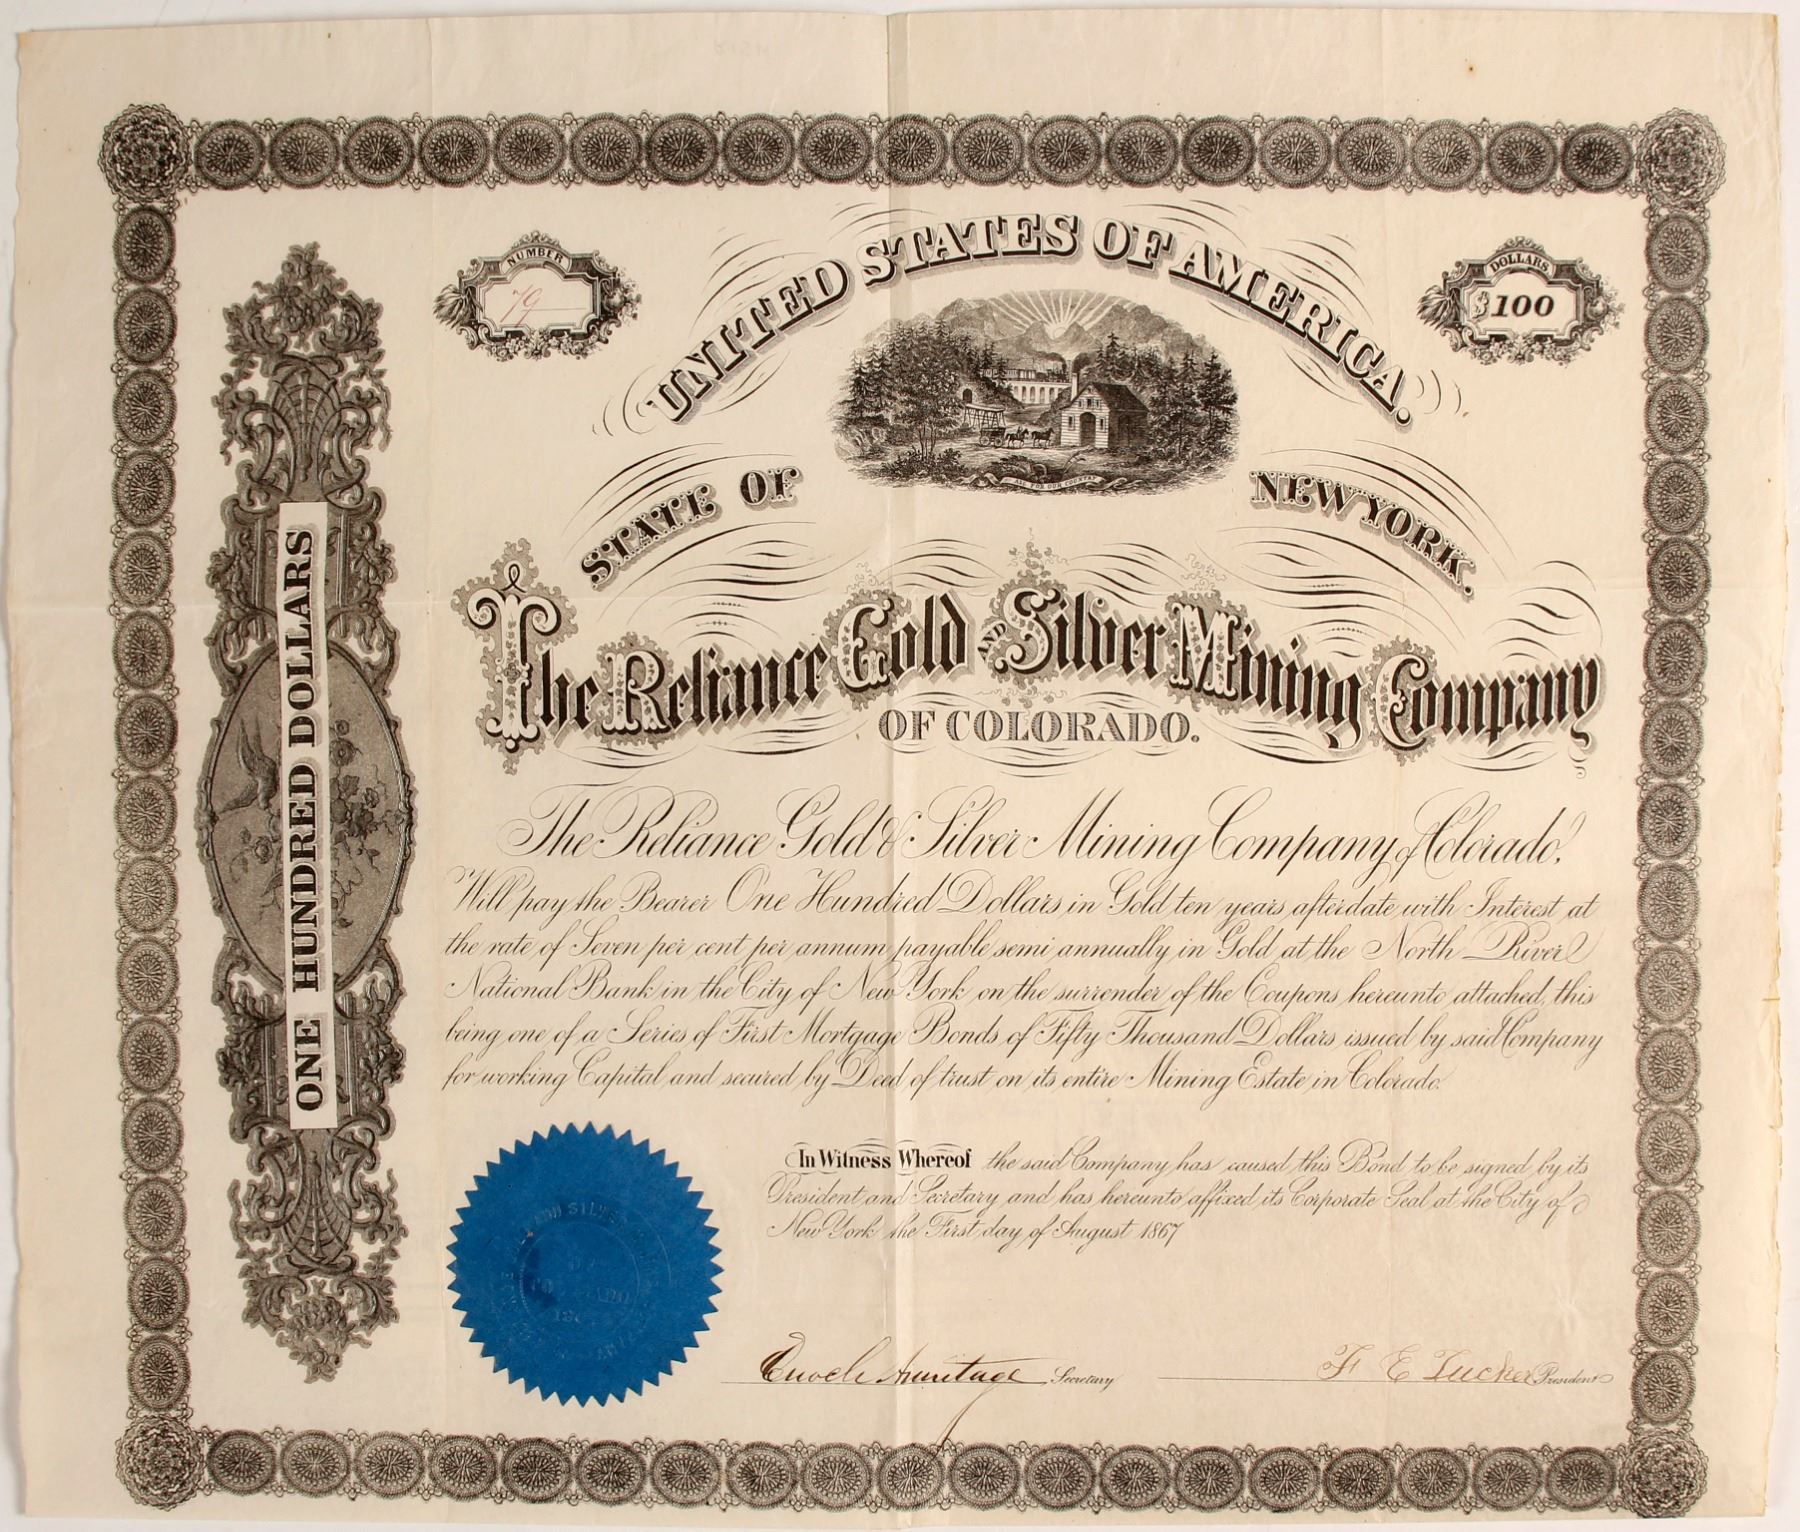 NUMBER
79
DOLLARS
$100
UNITED STATES OF AMERICA.
ALL FOR OUR COUNTRY
STATE OF NEW YORK.
The Reliance Gold AND Silver Mining Company
OF COLORADO.
ONE HUNDRED DOLLARS
The Reliance Gold & Silver Mining Company of Colorado.
Will pay the Bearer One Hundred Dollars in Gold ten years after date with Interest at
the rate of Seven per cent per annum payable semi annually in Gold at the North River
National Bank in the City of New York on the surrender of the Coupons hereunto attached, this
being one of a Series of First Mortgage Bonds of Fifty Thousand Dollars issued by said Company
for working Capital and secured by Deed of trust on its entire Mining Estate in Colorado.
In Witness Whereof the said Company has caused this Bond to be signed by its
President and Secretary and has hereunto affixed its Corporate Seal at the City of
New York the First day of August 1867
AND SILVER
Enoch Armitage Secretary
F E Tucker President